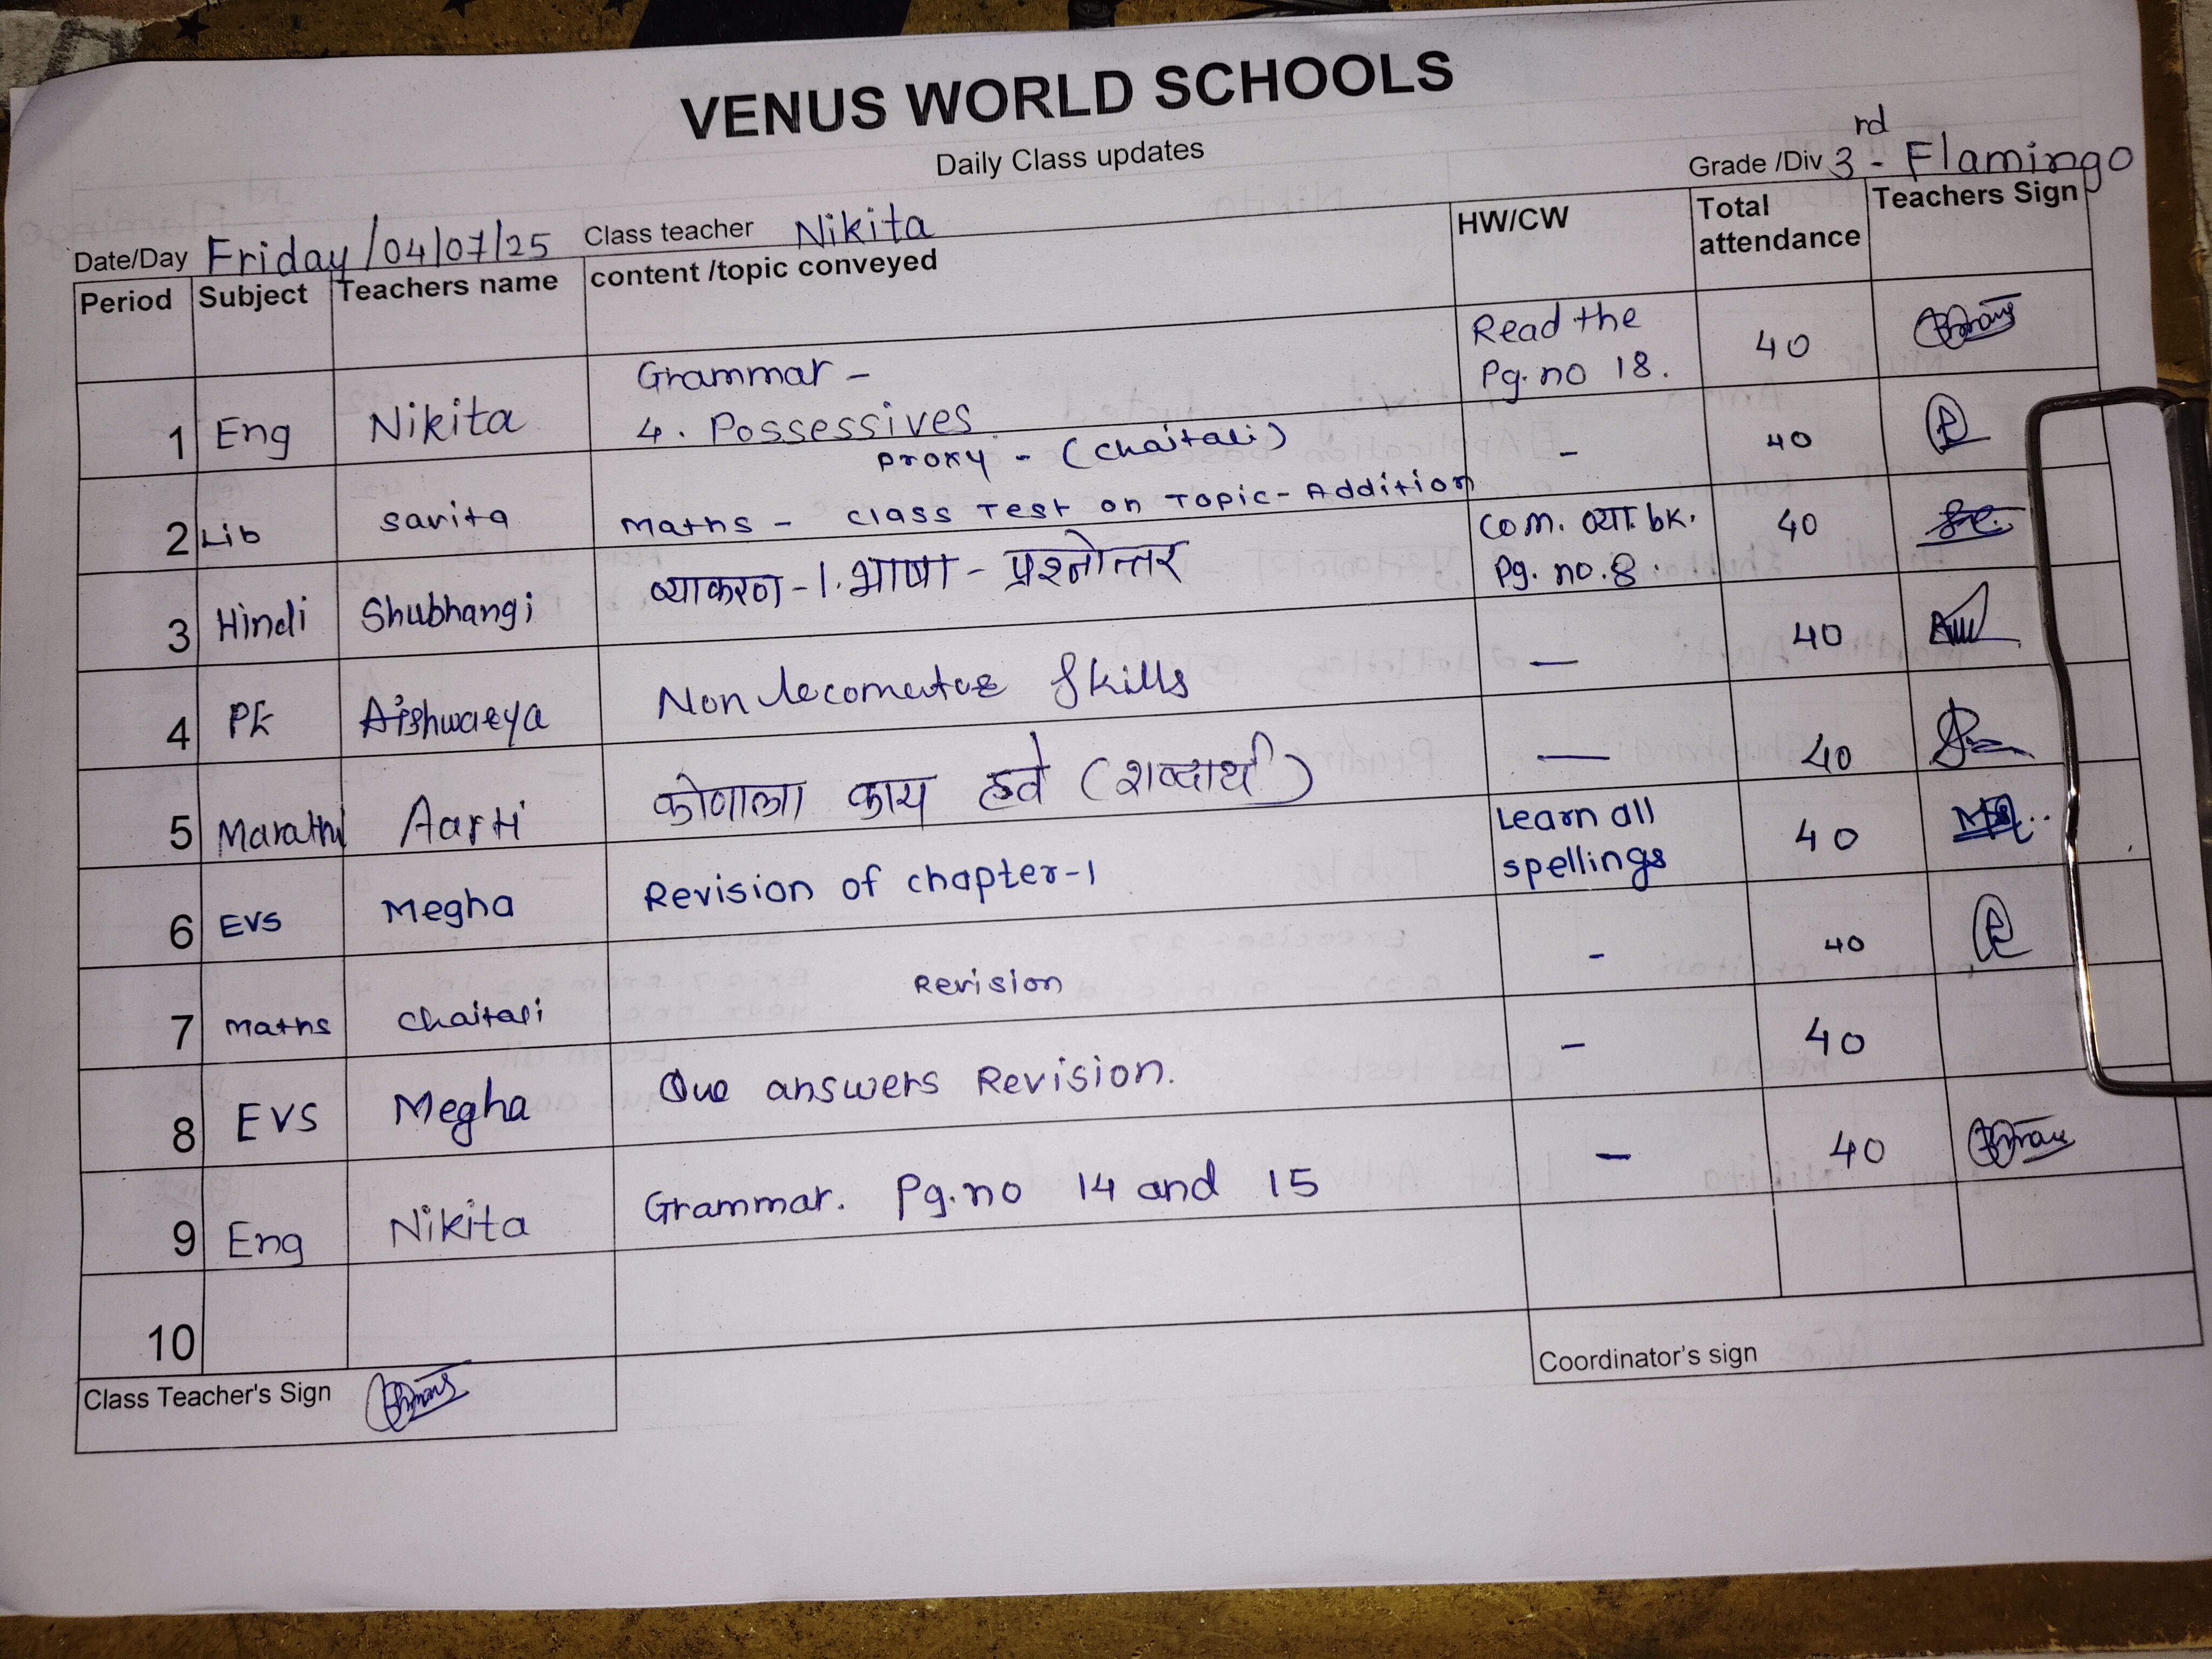 VENUS WORLD SCHOOLS
Daily Class updates
Grade /Div 3rd - Flamingo
Date/Day Friday/04/07/25 Class teacher Nikita
Period Subject Teachers name content /topic conveyed HW/CW Total attendance Teachers Sign
1 Eng Nikita Grammar - Read the 40
4. Possessives Pg. no 18.
2 Lib Savita Proxy - (Chaitali) - 40
Maths - Class Test on Topic - Addition
3 Hindi Shubhangi व्याकरण - 1. भाषा - प्रश्नोत्तर Com. व्या. bk. 40
Pg. no. 8.
4 PE Aishwarya Non locomotor Skills — 40
5 Marathi Aarti कोणाला काय हवे (शब्दार्थ) — 40
6 EVS Megha Revision of chapter-1 Learn all 40
spellings
7 Maths Chaitali Revision - 40
8 EVS Megha Que answers Revision. - 40
9 Eng Nikita Grammar. Pg. no 14 and 15 - 40
10
Class Teacher's Sign
Coordinator's sign